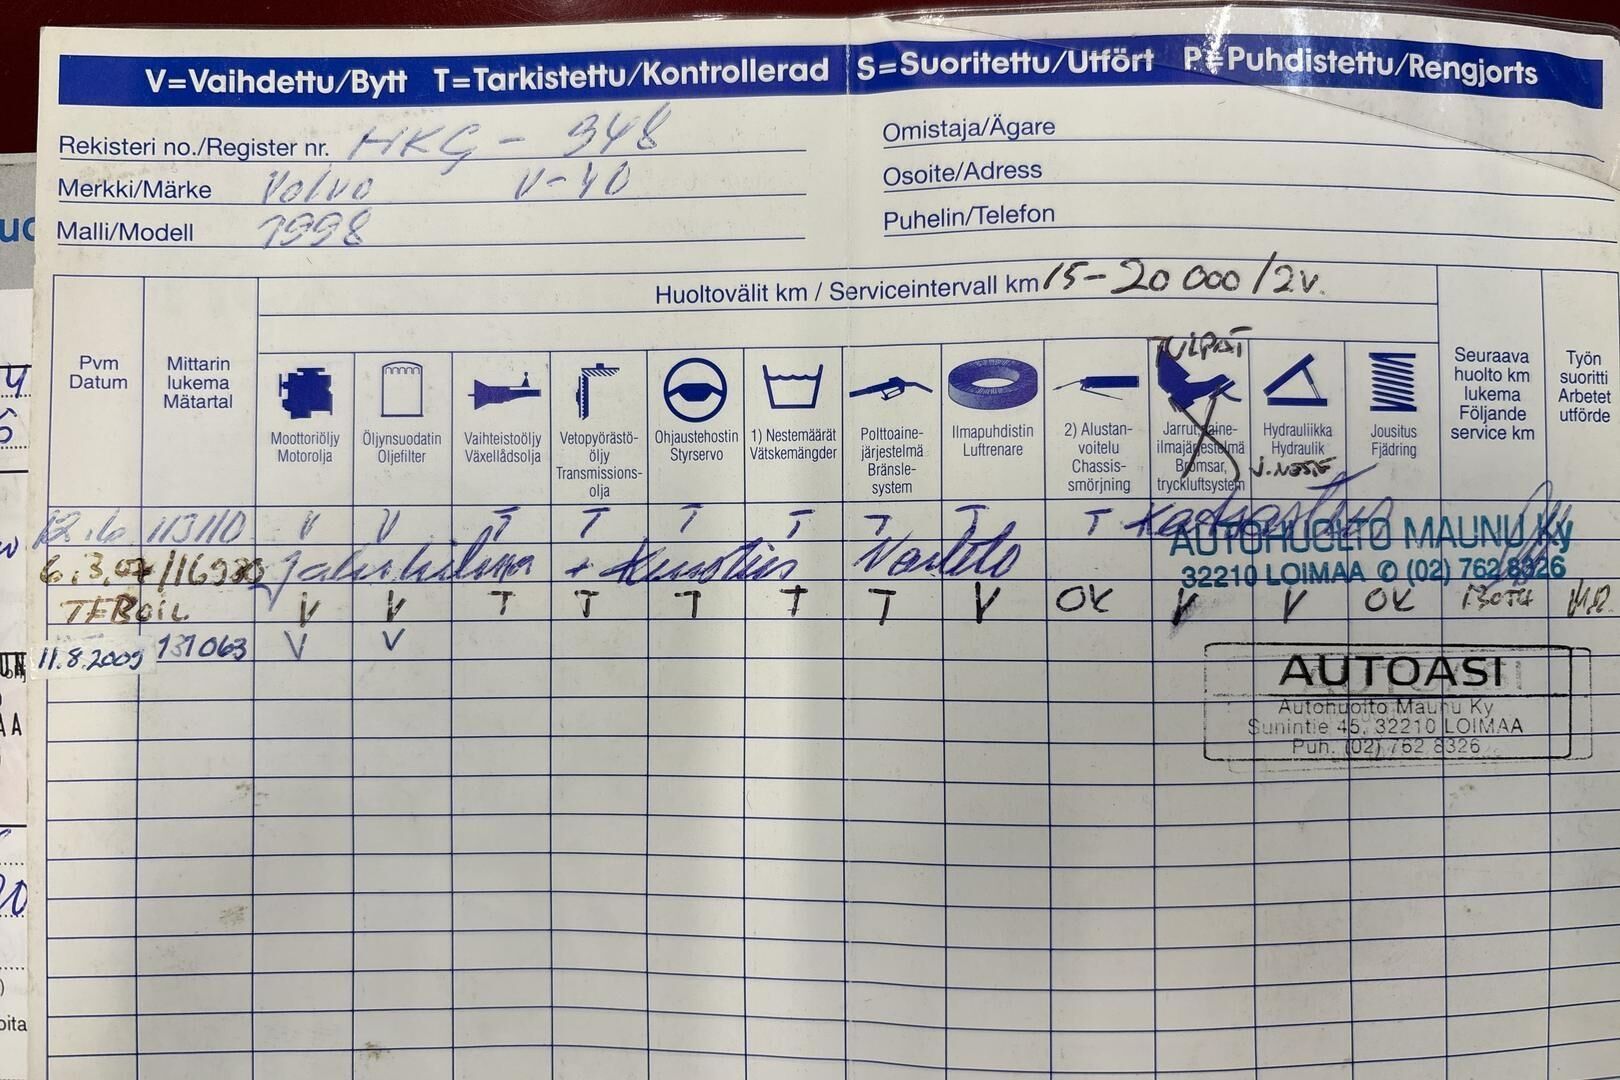 V=Vaihdettu/Bytt T=Tarkistettu/Kontrollerad S=Suoritettu/Utfört P=Puhdistettu/Rengjorts
Rekisteri no./Register nr. HKG - 348
Merkki/Märke Volvo V-40
Malli/Modell 1998
Omistaja/Ägare
Osoite/Adress
Puhelin/Telefon
Huoltovälit km / Serviceintervall km 15-20 000 /2V.
Pvm
Datum
Mittarin
lukema
Mätartal
Moottoriöljy
Motorolja
Öljynsuodatin
Oljefilter
Vaihteistoöljy
Växellådsolja
Vetopyörästö-
öljy
Transmissions-
olja
Ohjaustehostin
Styrservo
1) Nestemäärät
Vätskemängder
Polttoaine-
järjestelmä
Bränsle-
system
Ilmapuhdistin
Luftrenare
2) Alustan-
voitelu
Chassis-
smörjning
TULPAT
Jarrut, paine-
ilmajärjestelmä
Bromsar,
tryckluftsystem
Hydrauliikka
Hydraulik
J.NESTE
Jousitus
Fjädring
Seuraava
huolto km
lukema
Följande
service km
Työn
suoritti
Arbetet
utförde
113110 V V T T T T T T T
AUTOHUOLTO MAUNU Ky
32210 LOIMAA ✆ (02) 762 8326
6.3.07 Jakohihna +
TEBOIL V V T T T T T V OK V V OK
11.8.2009 131063 V V
AUTOASI
Autohuolto Maunu Ky
Sunintie 45, 32210 LOIMAA
Puh. (02) 762 8326